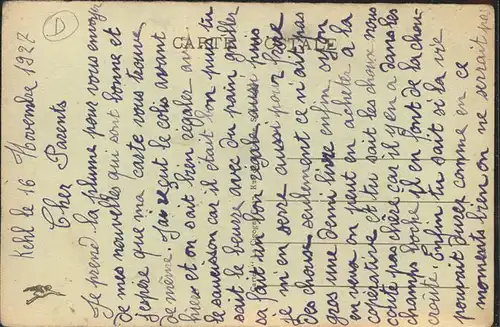 CARTE POSTALE
Kehl le 16 Novembre 1927
Cher Parents
Je prend la plume pour vous envoyer
de mes nouvelles qui sont bonne et
j'espère que ma carte vous trouve
de même. J'ai reçut le colis avant
hiers et on sait bien régales avec
le saucisson car il était bon puis tu
sait le beurre avec du pain griller
sa fait un bon régale aussi puis
je m'en serre aussi pour
des choux seulement ce n'ai pas
gros une demi livre enfin si on
en veux on peut en acheter à la
coopérative et tu sait les choux nous
coute pas chère car il y en a dans les
champs boche il en font de la chou-
croûte. Enfin tu sait si la vie
pouvait durer comme en ce
moments bien on ne serrait pas